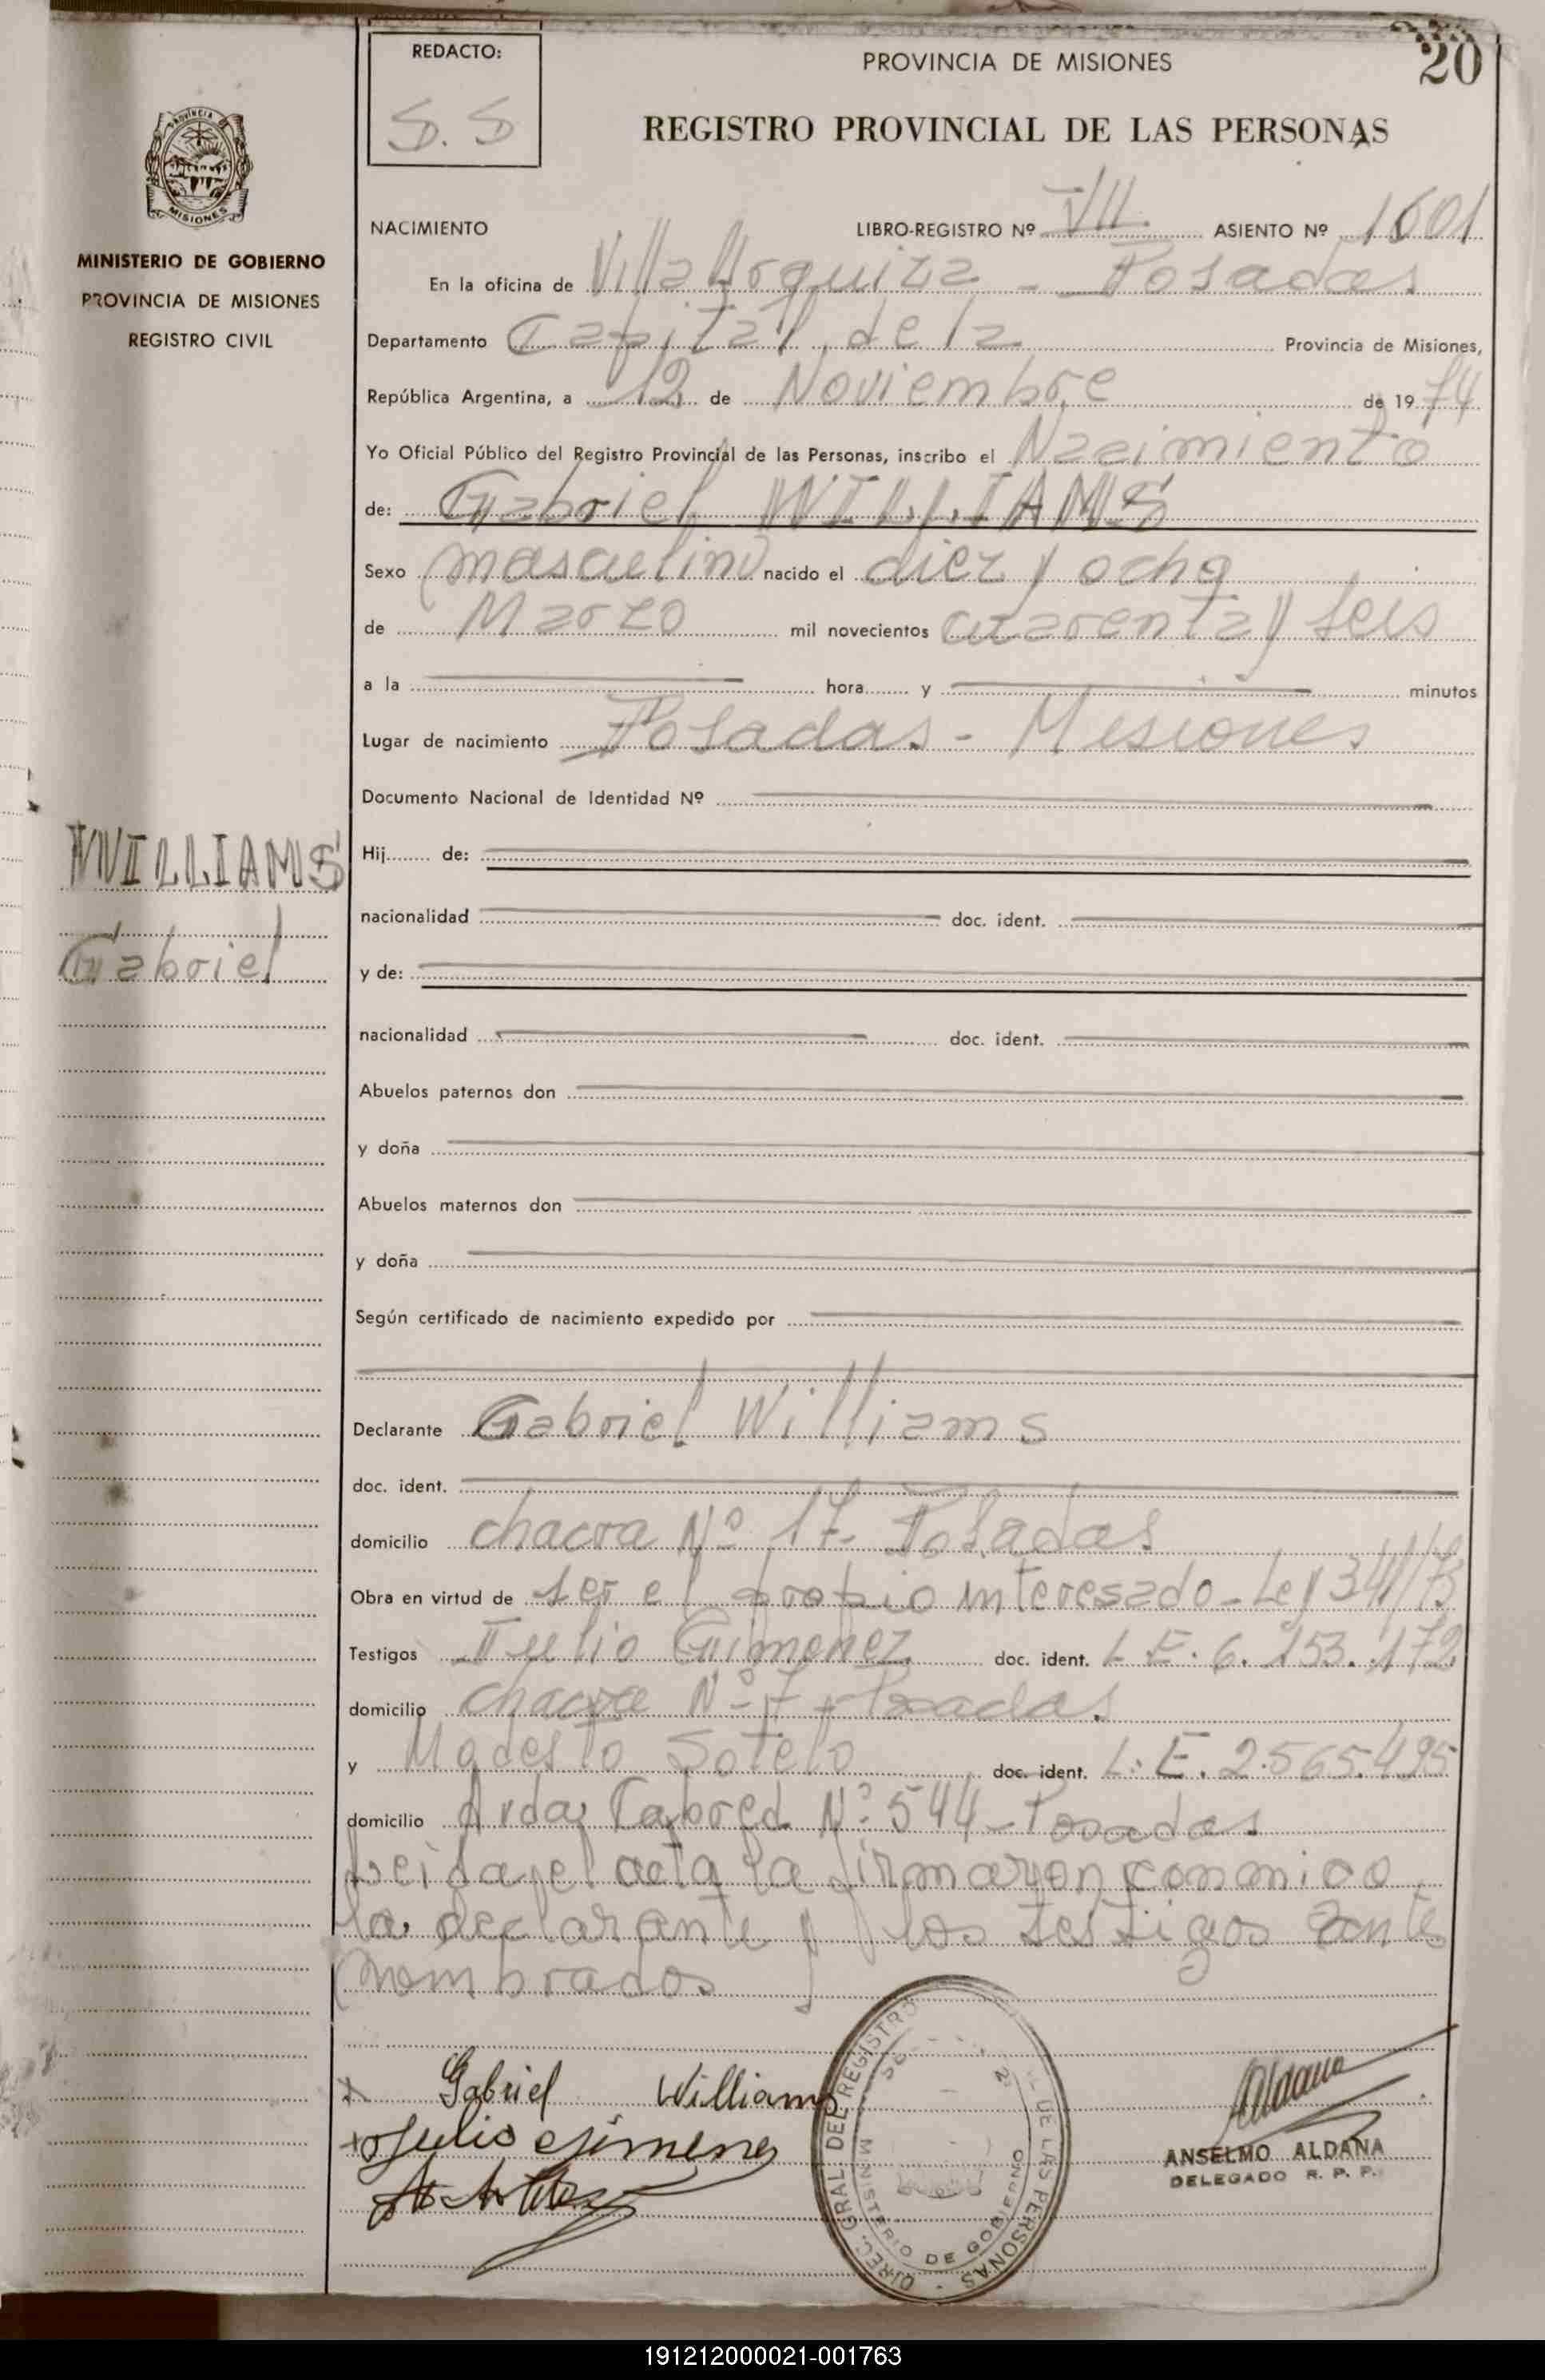 REDACTO:
S. S
PROVINCIA DE MISIONES
20
REGISTRO PROVINCIAL DE LAS PERSONAS
PROVINCIA
MISIONES
MINISTERIO DE GOBIERNO
PROVINCIA DE MISIONES
REGISTRO CIVIL
NACIMIENTO LIBRO-REGISTRO Nº VII ASIENTO Nº 1601
En la oficina de Villa Urquiza - Posadas
Departamento Capital de la Provincia de Misiones,
República Argentina, a 12 de Noviembre de 1974
Yo Oficial Público del Registro Provincial de las Personas, inscribo el Nacimiento
de: Gabriel WILLIAMS
Sexo masculino nacido el diez y ocho
de Marzo mil novecientos cuarenta y seis
a la hora y minutos
Lugar de nacimiento Posadas - Misiones
Documento Nacional de Identidad Nº
WILLIAMS
Gabriel
Hij de:
nacionalidad doc. ident.
y de:
nacionalidad doc. ident.
Abuelos paternos don
y doña
Abuelos maternos don
y doña
Según certificado de nacimiento expedido por
Declarante Gabriel Williams
doc. ident.
domicilio chacra Nº 17- Posadas
Obra en virtud de ser el propio interesado - Ley 341/73
Testigos Julio Gimenez doc. ident. L E. 6. 153. 172
domicilio chacra Nº 7 - Posadas
y Modesto Sotelo doc. ident. L. E. 2.565.495
domicilio Avda, Cabred Nº 544 - Posadas
Leida el acta la firmaron conmigo
la declarante y los testigos ante
nombrados
Gabriel Williams
Julio Gimenez
DIREC. GRAL DEL REGISTRO DE LAS PERSONAS
MINISTERIO DE GOBIERNO
Aldana
ANSELMO ALDANA
DELEGADO R. P. P.
191212000021-001763